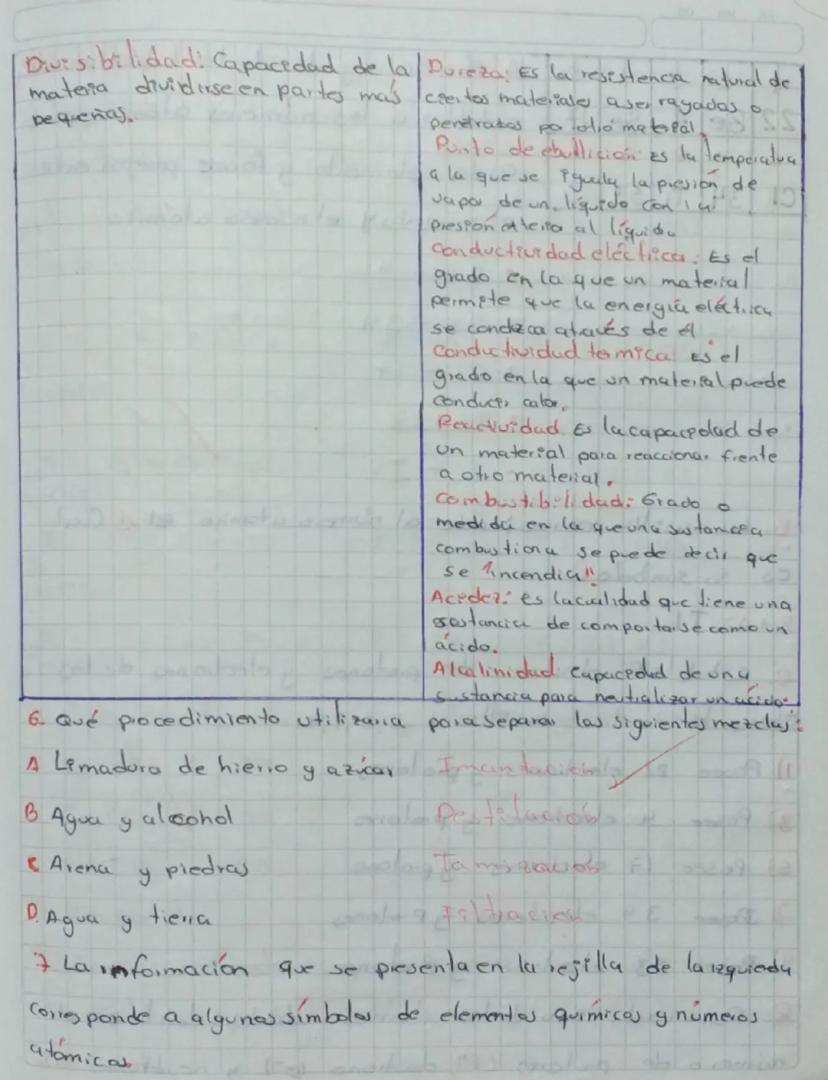 Divisibilidad: Capacidad de la
materia dividirse en partes más
pequeñas.
Dureza: Es la resistencia natural de
ciertos materiales a ser rayados o
penetrados por otro material.
Punto de ebullición: Es la temperatura
a la que se iguala la presión de
vapor de un líquido con la
presión externa al líquido
Conductividad eléctrica: Es el
grado en la que un material
permite que la energía eléctrica
se conduzca através de él.
Conductividad termica Es el
grado en la que un material puede
conducir calor.
Reactividad Es la capacidad de
un material para reaccionar frente
a otro material.
Combustibilidad: Grado o
medida en la que una sustancia
combustiona se puede decir que
se "incendia"
Acidez: es la cualidad que tiene una
sustancia de comportarse como un
ácido.
Alcalinidad capacidad de una
sustancia para neutralizar un ácido.
6. Qué procedimiento utilizaria para separar las siguientes mezclas:
A Limadura de hierro y azúcar Imantación
B Agua y alcohol Destilación
C Arena y piedras Tamización
D. Agua y tierra Filtración
7 La información que se presenta en la rejilla de la izquieda
corresponde a algunos símbolos de elementos químicos y números
atómicos.